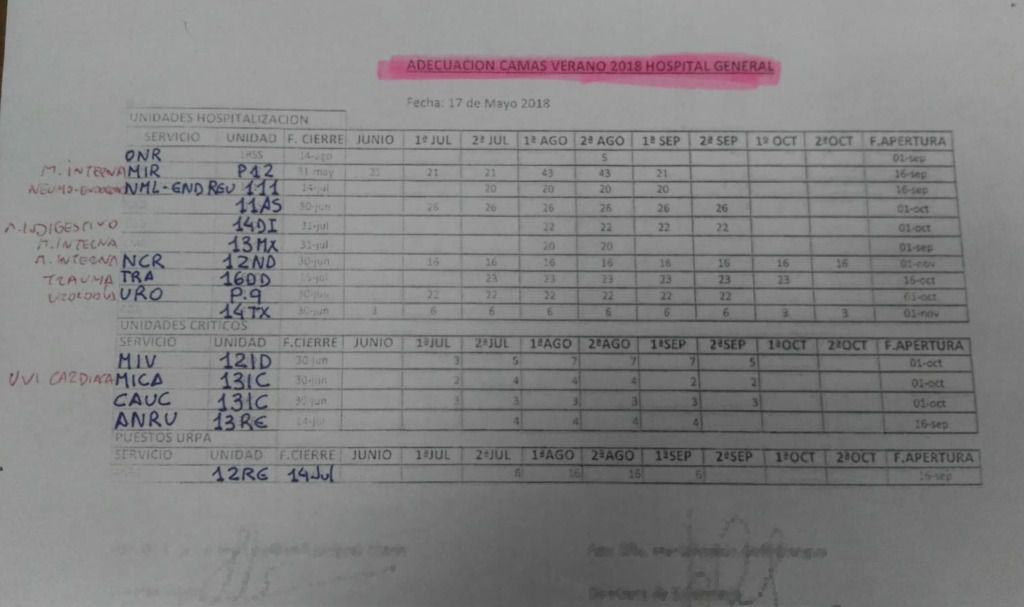 ADECUACION CAMAS VERANO 2018 HOSPITAL GENERAL
Fecha: 17 de Mayo 2018
UNIDADES HOSPITALIZACION
SERVICIO UNIDAD F. CIERRE JUNIO 1ª JUL 2ª JUL 1ª AGO 2ª AGO 1ª SEP 2ª SEP 1º OCT 2ªOCT F.APERTURA
ONR 14-ago 5 01-sep
M. INTERNA MIR P12 31-may 21 21 21 43 43 21 16-sep
NML-END REU 111 20 20 20 20 16-sep
11AS 30-jun 26 26 26 26 26 26 01-oct
14DI 31-jul 22 22 22 22 01-oct
M. INTERNA 13MX 31-jul 20 20 01-sep
M. INTERNA NCR 12ND 30-jun 16 16 16 16 16 16 16 16 01-nov
TRAUMA TRA 160D 23 23 23 23 23 23 16-oct
UROLOGIA URO P.9 22 22 22 22 22 22 01-oct
14TX 30-jun 3 6 6 6 6 6 6 3 3 01-nov
UNIDADES CRITICOS
SERVICIO UNIDAD F.CIERRE JUNIO 1ªJUL 2ªJUL 1ªAGO 2ªAGO 1ªSEP 2ªSEP 1ªOCT 2ªOCT F.APERTURA
MIV 12ID 30-jun 3 5 7 7 7 5 01-oct
UVI CARDIACA MICA 131C 30-jun 2 4 4 4 2 2 01-oct
CAUC 131C 30-jun 3 3 3 3 3 3 01-oct
ANRU 13RE 14-jul 4 4 4 4 16-sep
PUESTOS URPA
SERVICIO UNIDAD F.CIERRE JUNIO 1ªJUL 2ªJUL 1ªAGO 2ªAGO 1ªSEP 2ªSEP 1ªOCT 2ªOCT F.APERTURA
12RE 14Jul 6 16 16 6 16-sep